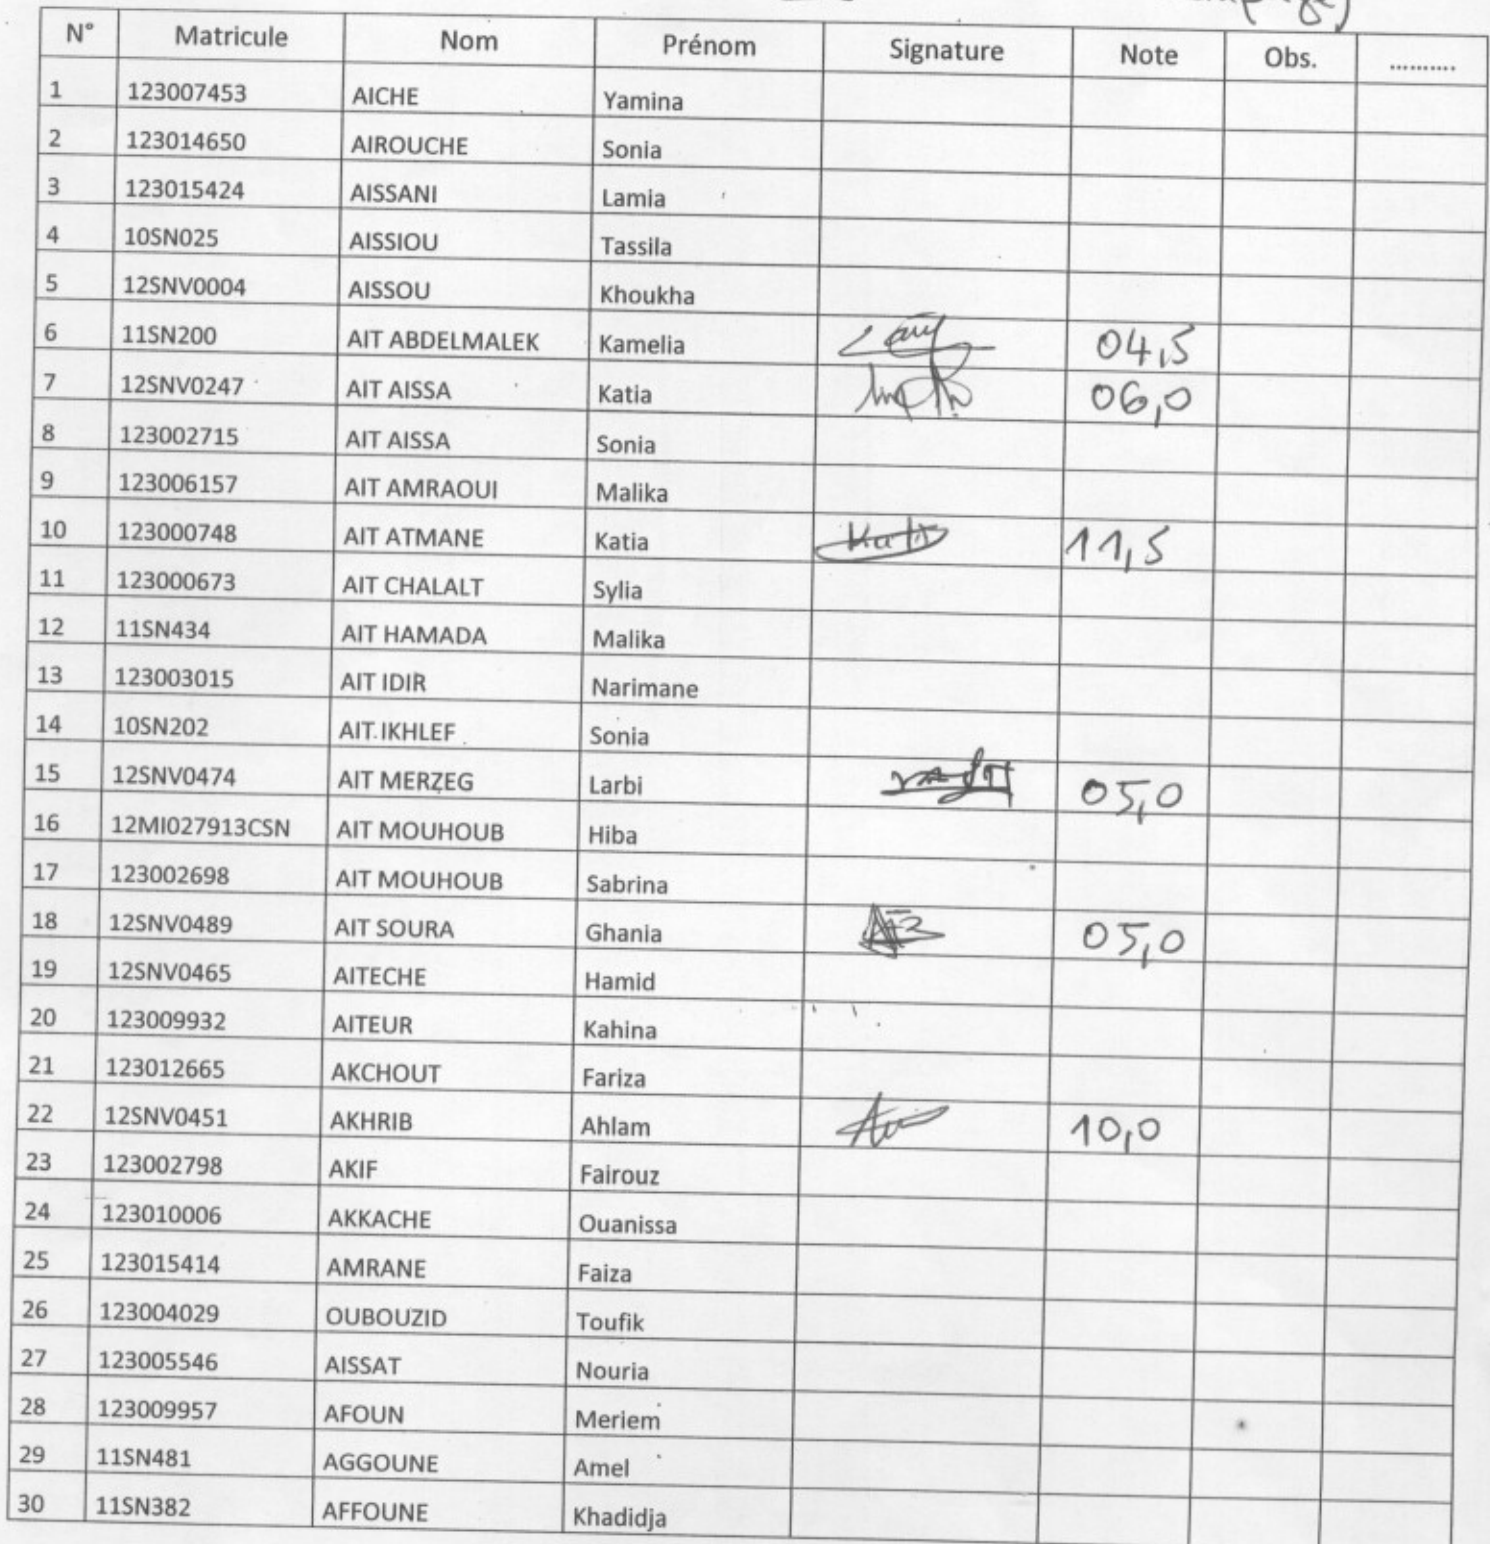 N° Matricule Nom Prénom Signature Note Obs. ..........
1 123007453 AICHE Yamina
2 123014650 AIROUCHE Sonia
3 123015424 AISSANI Lamia
4 10SN025 AISSIOU Tassila
5 12SNV0004 AISSOU Khoukha
6 11SN200 AIT ABDELMALEK Kamelia 04,5
7 12SNV0247 AIT AISSA Katia 06,0
8 123002715 AIT AISSA Sonia
9 123006157 AIT AMRAOUI Malika
10 123000748 AIT ATMANE Katia 11,5
11 123000673 AIT CHALALT Sylia
12 11SN434 AIT HAMADA Malika
13 123003015 AIT IDIR Narimane
14 10SN202 AIT IKHLEF Sonia
15 12SNV0474 AIT MERZEG Larbi 05,0
16 12MI027913CSN AIT MOUHOUB Hiba
17 123002698 AIT MOUHOUB Sabrina
18 12SNV0489 AIT SOURA Ghania 05,0
19 12SNV0465 AITECHE Hamid
20 123009932 AITEUR Kahina
21 123012665 AKCHOUT Fariza
22 12SNV0451 AKHRIB Ahlam 10,0
23 123002798 AKIF Fairouz
24 123010006 AKKACHE Ouanissa
25 123015414 AMRANE Faiza
26 123004029 OUBOUZID Toufik
27 123005546 AISSAT Nouria
28 123009957 AFOUN Meriem
29 11SN481 AGGOUNE Amel
30 11SN382 AFFOUNE Khadidja